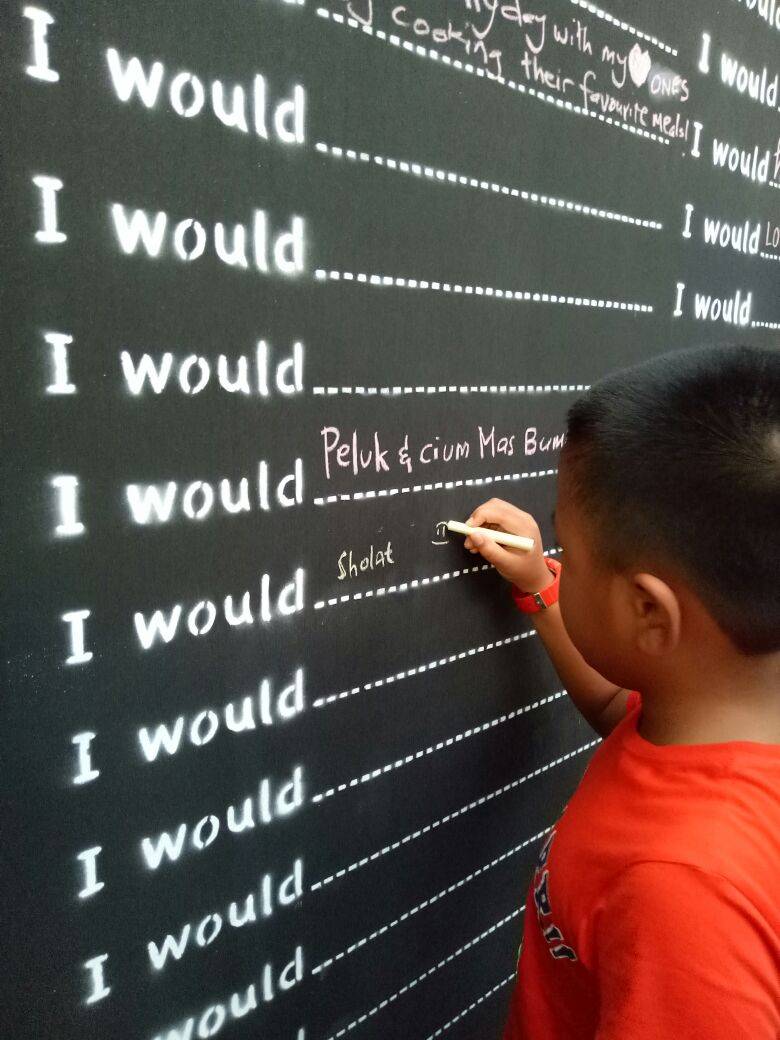 day with my ONES
cooking their favourite meals!
I would
I would
I would
I would Peluk & cium Mas
I would Sholat
I would
I would
I would
would
I would
I would
I would Lo
I would